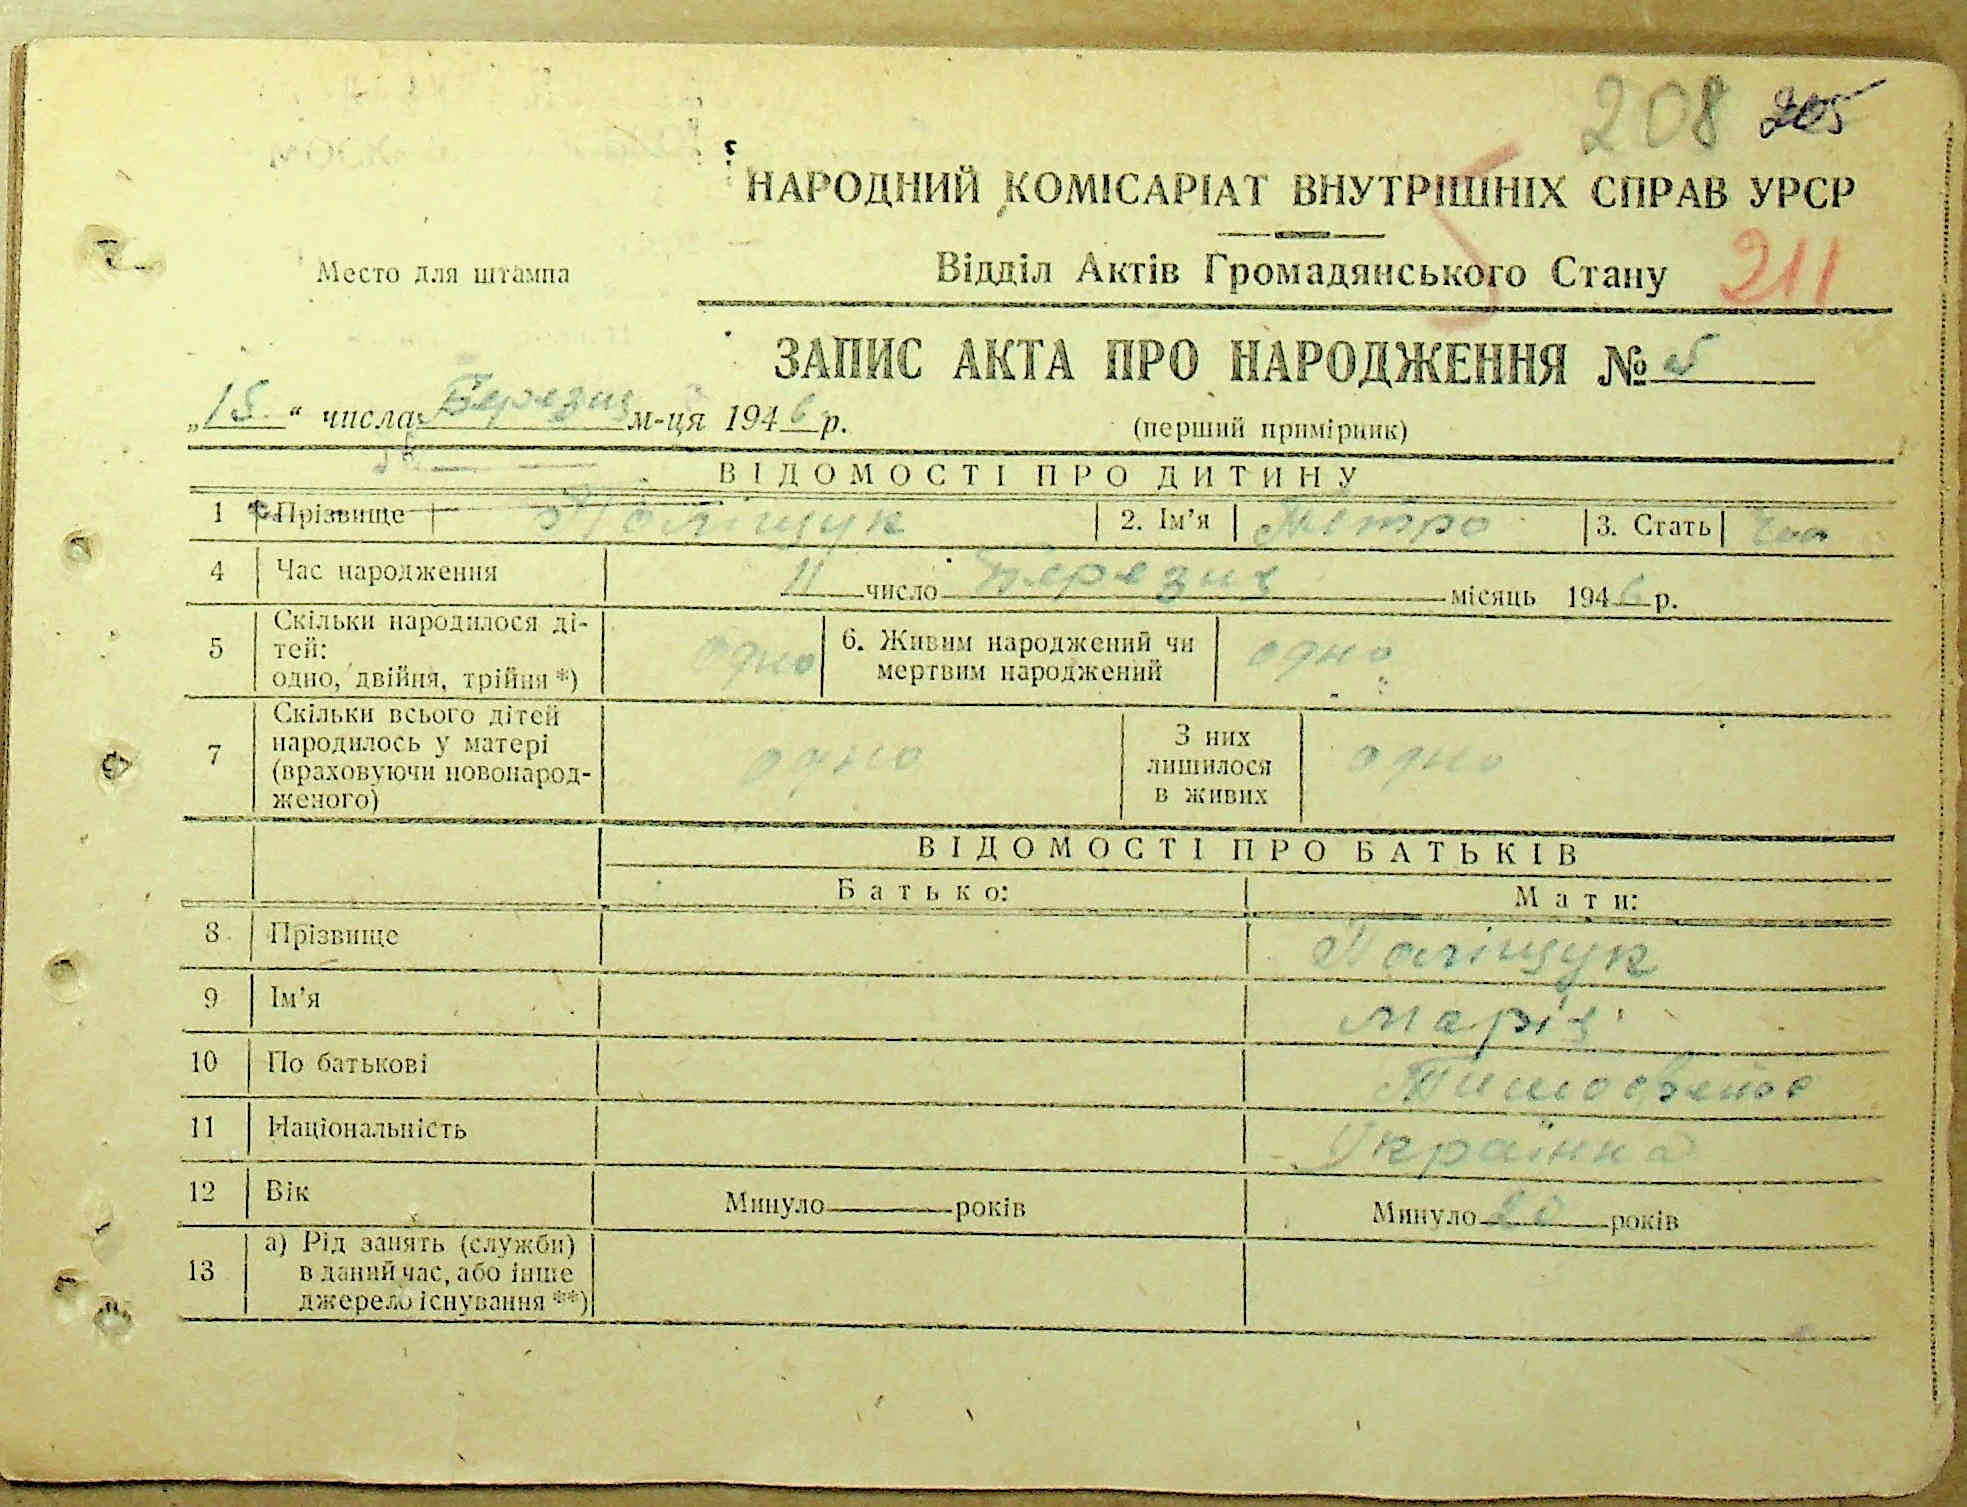 208 205
НАРОДНИЙ КОМІСАРІАТ ВНУТРІШНІХ СПРАВ УРСР
Место для штампа
Відділ Актів Громадянського Стану 211
ЗАПИС АКТА ПРО НАРОДЖЕННЯ № 5
„15“ числа Березня м-ця 1946 р.
(перший примірник)
ВІДОМОСТІ ПРО ДИТИНУ
1 Прізвище Поліщук 2. Ім’я Петро 3. Стать чол
4 Час народження 11 число Березня місяць 1946 р.
5 Скільки народилося ді-
тей:
одно, двійня, трійня *) одно 6. Живим народжений чи
мертвим народжений одно
7 Скільки всього дітей
народилось у матері
(враховуючи новонарод-
женого) одно З них
лишилося
в живих одно
ВІДОМОСТІ ПРО БАТЬКІВ
Батько: Мати:
8 Прізвище Поліщук
9 Ім’я Марія
10 По батькові
11 Національність Українка
12 Вік Минуло років Минуло 20 років
13 а) Рід занять (служби)
в даний час, або інше
джерело існування **)